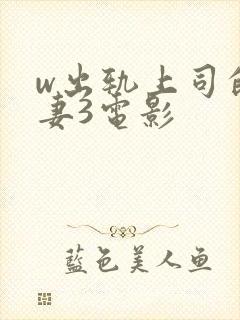 w出轨上司的
妻3电影
蓝色美人鱼